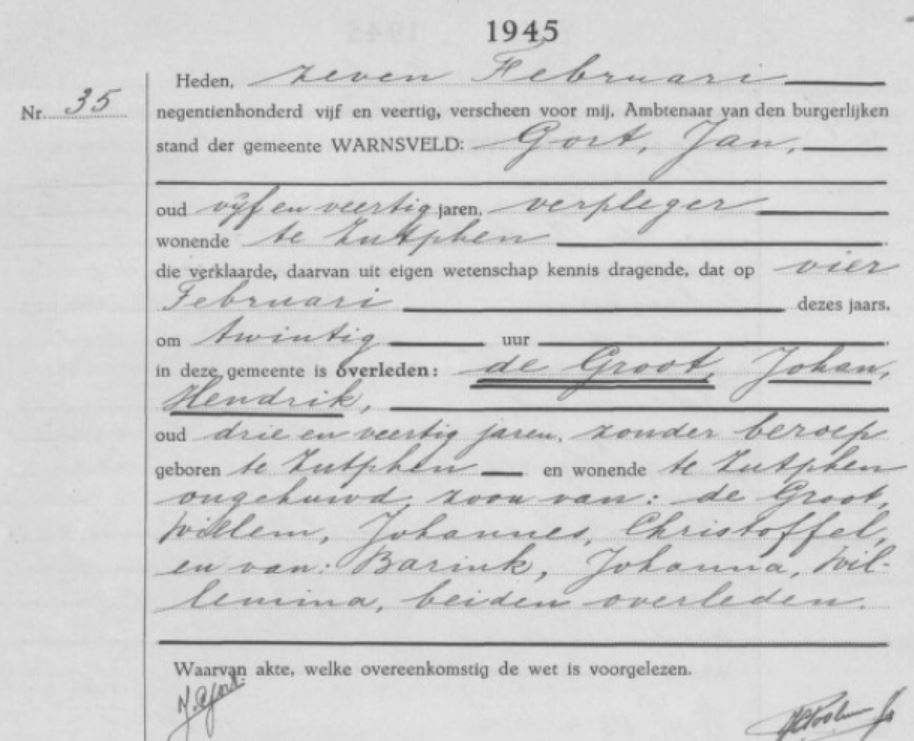 1945
Heden, zeven Februari
Nr. 35
negentienhonderd vijf en veertig, verscheen voor mij, Ambtenaar van den burgerlijken
stand der gemeente WARNSVELD: Gort, Jan,
oud vijf en veertig jaren, verpleger
wonende te Zutphen
die verklaarde, daarvan uit eigen wetenschap kennis dragende, dat op vier
Februari dezes jaars,
om twintig uur
in deze gemeente is overleden: de Groot, Johan,
Hendrik,
oud drie en veertig jaren, zonder beroep
geboren te Zutphen en wonende te Zutphen
ongehuwd, zoon van: de Groot,
Willem, Johannes, Christoffel,
en van: Barink, Johanna, Wil-
lemina, beiden overleden.
Waarvan akte, welke overeenkomstig de wet is voorgelezen.
J. Gort.